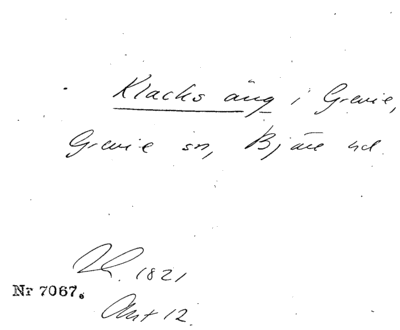 Klacks äng i Grevie,
Grevie sn, Bjäre hd.
1821
Nr 7067.
Akt 12.